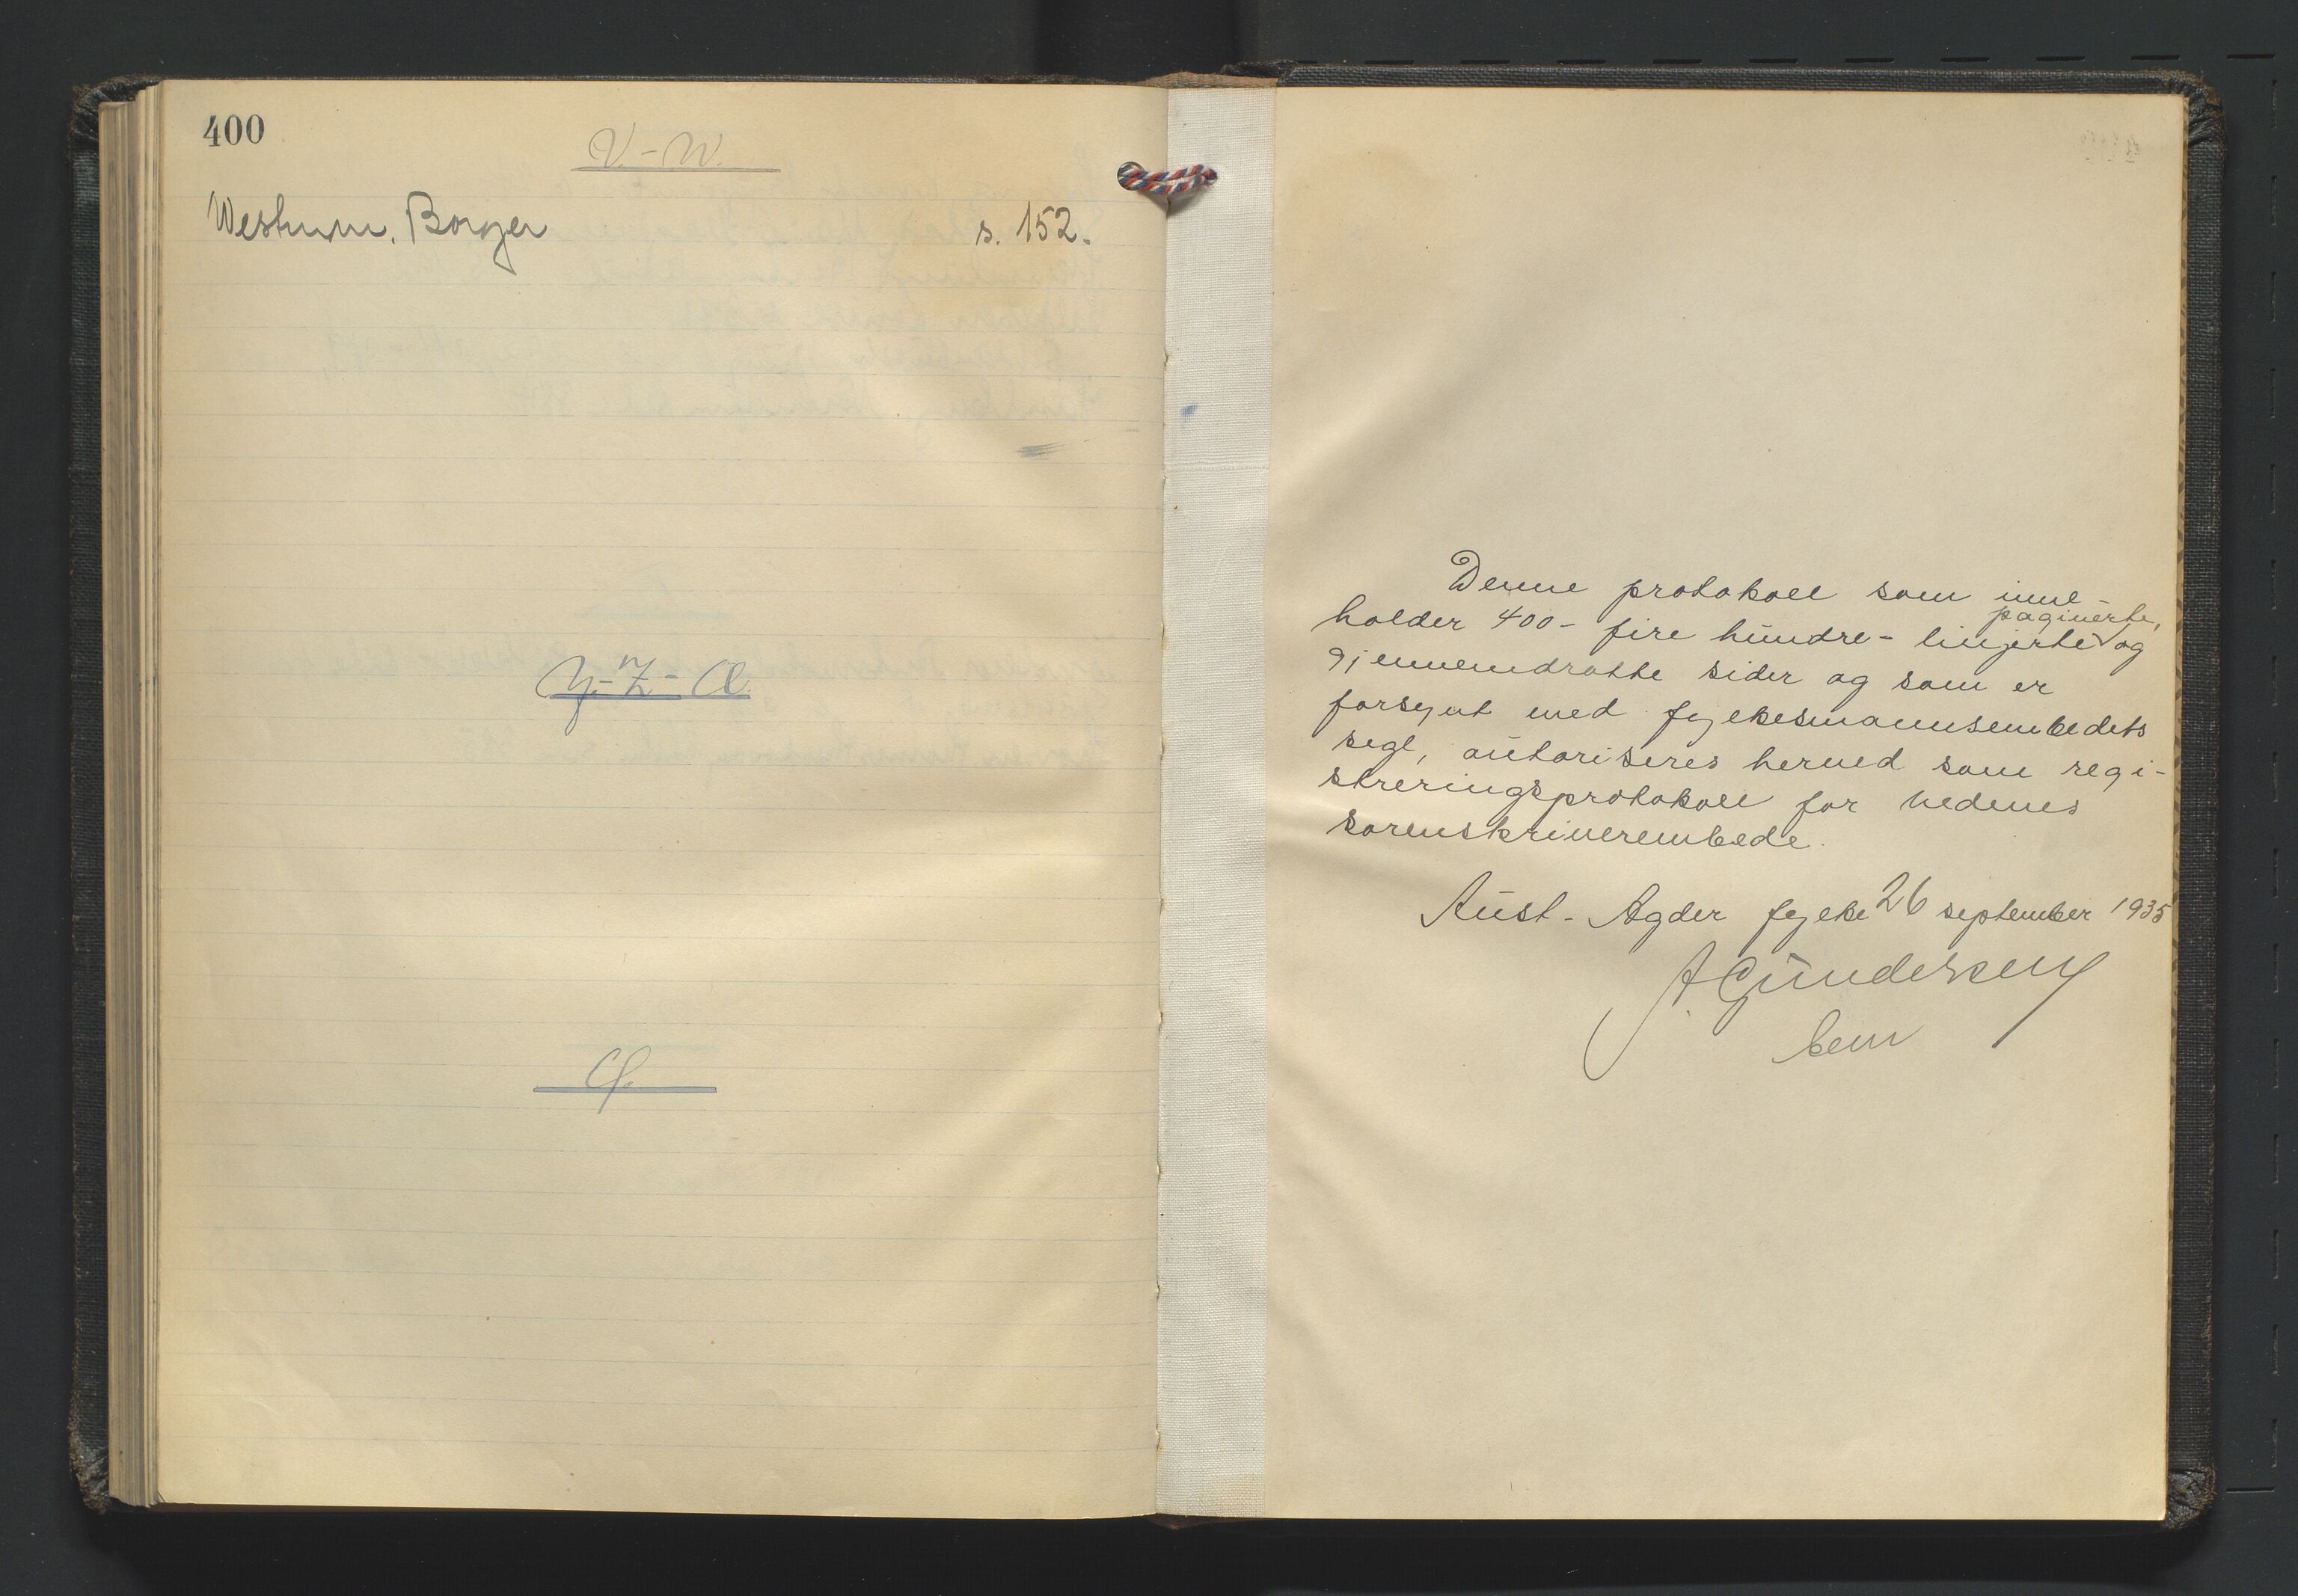 400
V.-W.
Westrum, Borger s. 152.
Y.-Z-Æ
Ø.
Denne protokoll som inne-
holder 400- fire hundre- linjerte paginerte, og
gjennemdratte sider og som er
forsynt med fylkesmannsembedets
segl, autoriseres herved som regi-
streringsprotokoll for Nedenes
sorenskriverembede.
Aust-Agder fylke 26 september 1935
A Gundersen
bem